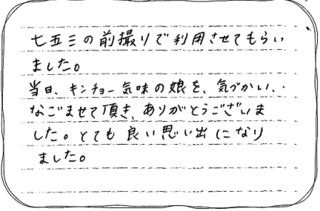 七五三の前撮りで利用させてもらい
ました。
当日、キンチョー気味の娘を、気づかい、、
なごませて頂き、ありがとうございま
した。とても良い思い出になり
ました。